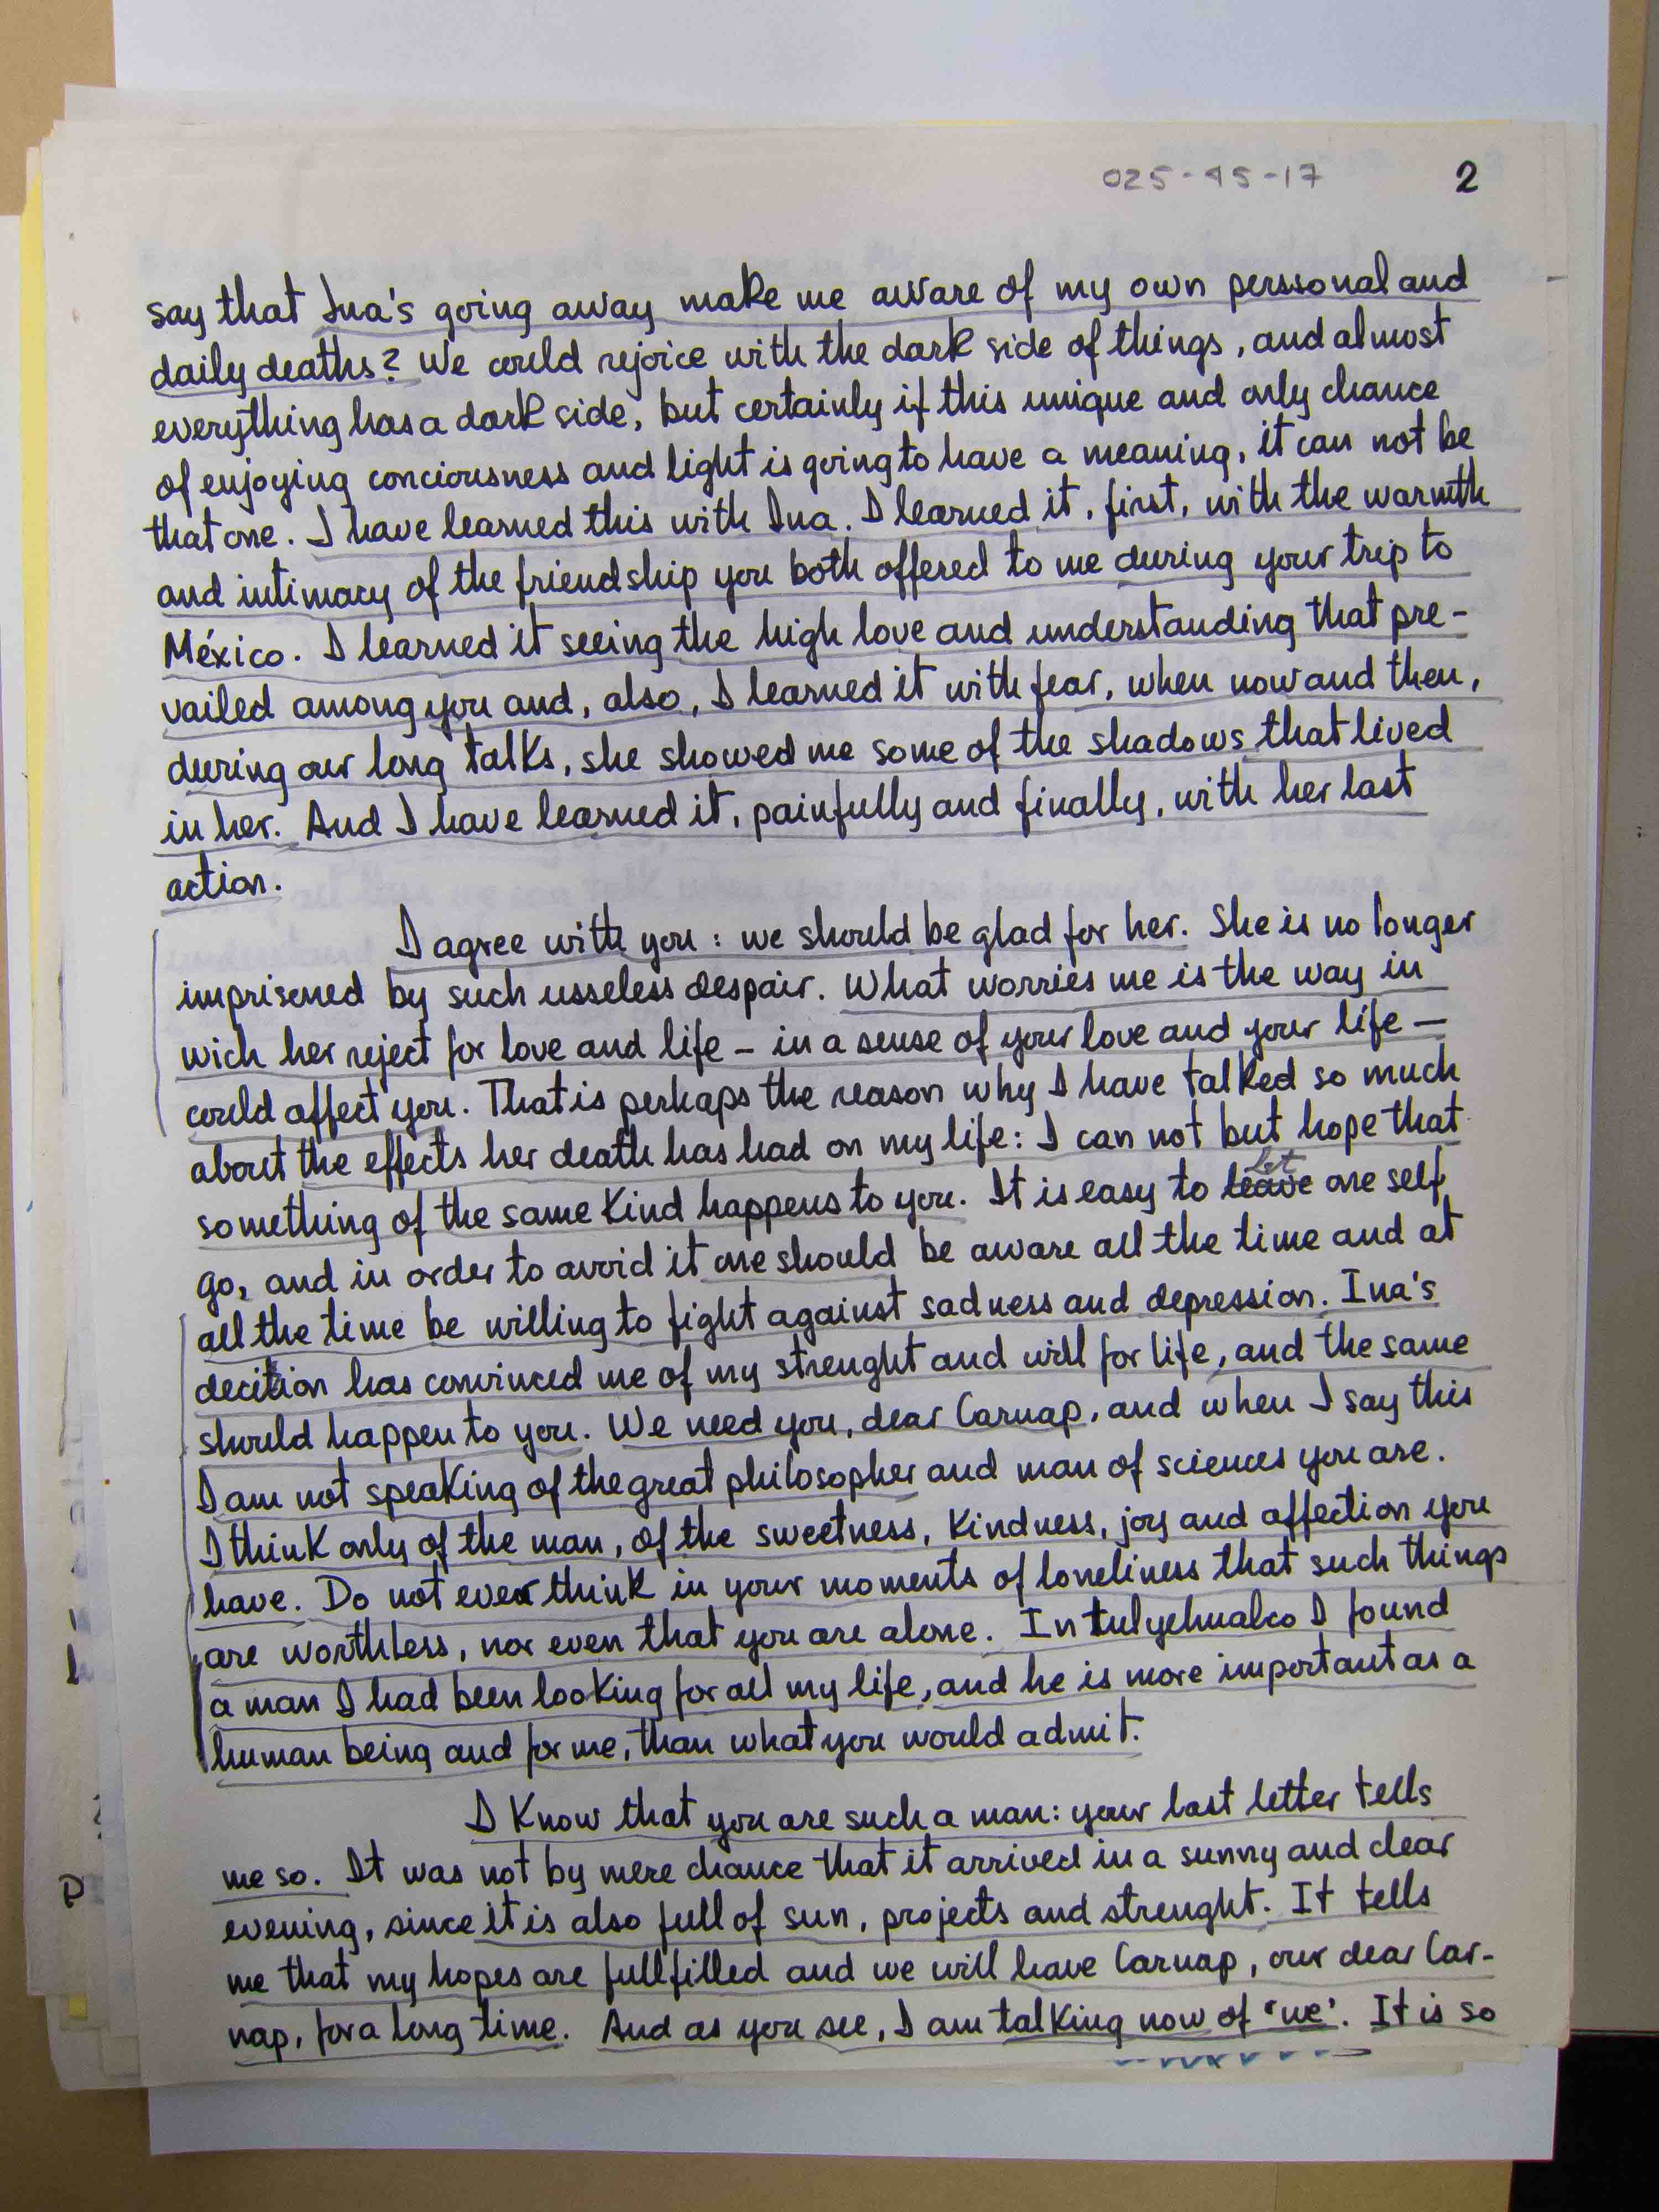 025-45-17 2
say that Ina's going away make me aware of my own perssonal and
daily deaths? We could rejoice with the dark side of things, and almost
everything has a dark side, but certainly if this unique and only chance
of enjoying conciousness and light is going to have a meaning, it can not be
that one. I have learned this with Ina. I learned it, first, with the warmth
and intimacy of the friendship you both offered to me during your trip to
México. I learned it seeing the high love and understanding that pre-
vailed among you and, also, I learned it with fear, when now and then,
during our long talks, she showed me some of the shadows that lived
in her. And I have learned it, painfully and finally, with her last
action.
I agree with you: we should be glad for her. She is no longer
imprisoned by such usseless despair. What worries me is the way in
wich her reject for love and life – in a sense of your love and your life –
could affect you. That is perhaps the reason why I have talked so much
about the effects her death has had on my life: I can not but hope that
something of the same kind happens to you. It is easy to leave let one self
go, and in order to avoid it one should be aware all the time and at
all the time be willing to fight against sadness and depression. Ina's
decition has convinced me of my strenght and will for life, and the same
should happen to you. We need you, dear Carnap, and when I say this
I am not speaking of the great philosopher and man of sciences you are.
I think only of the man, of the sweetness, kindness, joy and affection you
have. Do not ever think in your moments of loneliness that such things
are worthless, nor even that you are alone. In tulyehualco I found
a man I had been looking for all my life, and he is more important as a
human being and for me, than what you would admit.
I know that you are such a man: your last letter tells
me so. It was not by mere chance that it arrived in a sunny and clear
evening, since it is also full of sun, projects and strenght. It tells
me that my hopes are fullfilled and we will have Carnap, our dear Car-
nap, for a long time. And as you see, I am talking now of 'we'. It is so